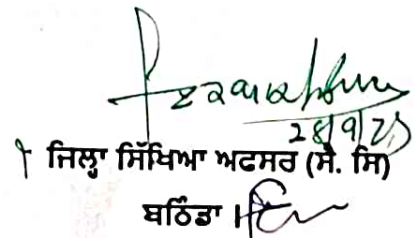 28/9/23
ਜਿਲ੍ਹਾ ਸਿੱਖਿਆ ਅਫਸਰ (ਸੈ. ਸਿ)
ਬਠਿੰਡਾ।